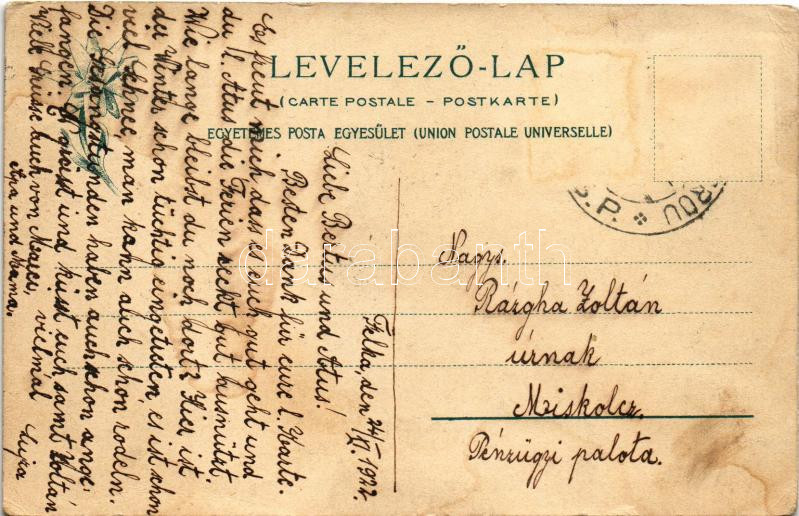 LEVELEZŐ-LAP
(CARTE POSTALE – POSTKARTE)
EGYETEMES POSTA EGYESŰLET (UNION POSTALE UNIVERSELLE)
Felka, den 24/XI. 1922.
Liebe Bertus und Atus!
Besten Dank für eure l. Karte.
Es freut mich dass es euch gut geht und
du l. Atus die Ferien recht gut ausnützt.
Wie lange bleibst du noch dort? Hier ist
der Winter schon tüchtig eingetreten, es ist schon
viel Schnee, man kann auch schon rodeln.
Die Gesangstunden haben auch schon ange-
fangen. Es grüsst und küsst euch, samt Zoltán
Viele Grüsse euch von Maici, vielmal
Apa und Mama.
Nagys.
Rázgha Zoltán
úrnak
Miskolcz.
Pénzügyi palota.
S. P.
darabanth